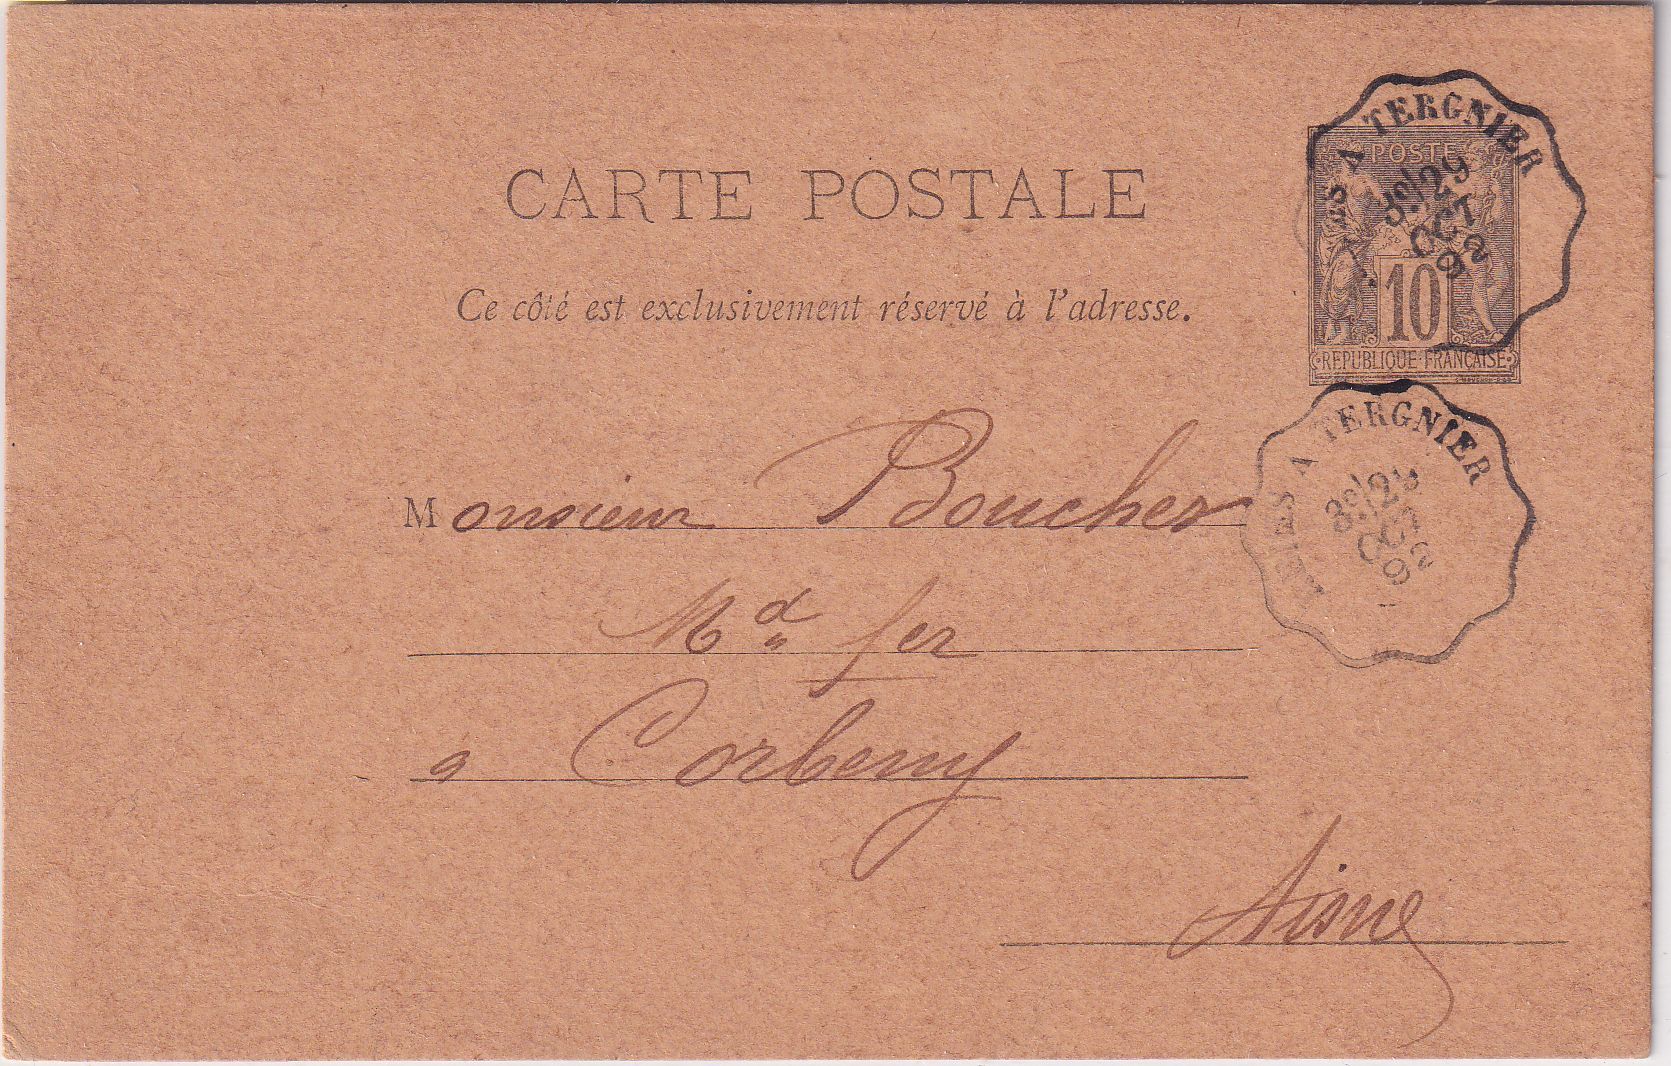 CARTE POSTALE
Ce côté est exclusivement réservé à l'adresse.
POSTE
10
REPUBLIQUE FRANÇAISE
A TERGNIER
3º/29
OCT
92
A TERGNIER
3º/29
OCT
92
Monsieur Boucher
Md fer
à Corbeny
Aisne